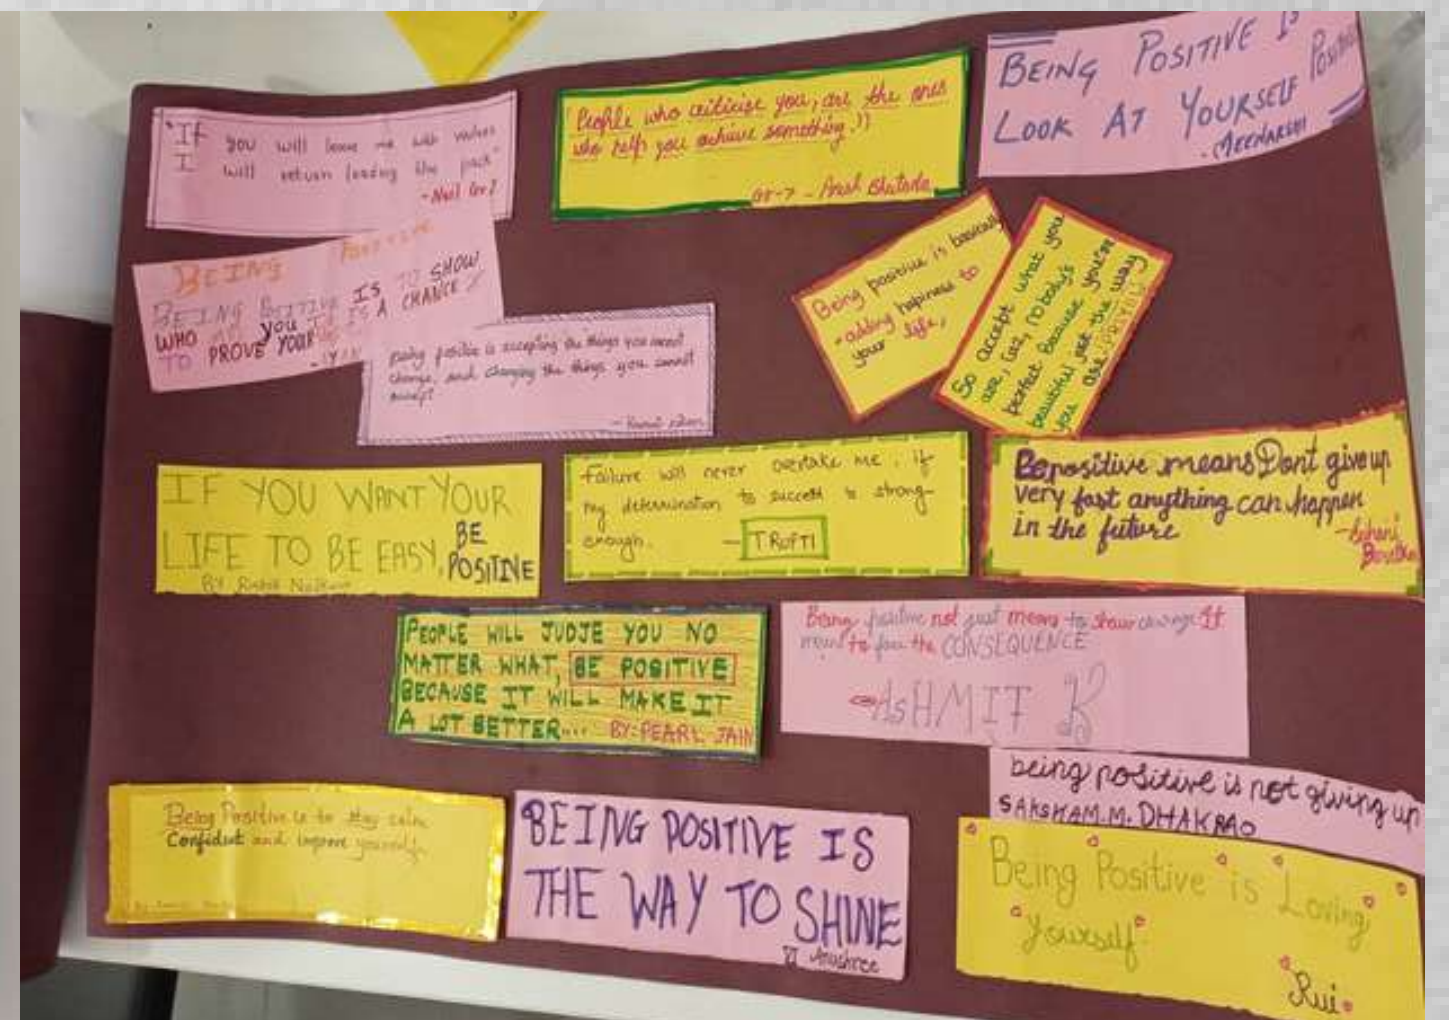 "If you will leave me with wolves
I will return leading the pack"
People who criticise you, are the ones
who help you achieve something."
Gr-7 - Ansh Bhutada
BEING POSITIVE IS
LOOK AT YOURSELF
- MEENAKSHI
BEING POSITIVE
BEING POSITIVE IS TO SHOW
WHO YOU IS A CHANCE
TO PROVE YOUR
being positive is accepting the things you cannot
change, and changing the things you cannot
accept
Being positive is basically
adding hapiness to
your life,
So accept what you
are, coz, nobody's
perfect Because you're
beautiful not the way
you ask
IF YOU WANT YOUR
LIFE TO BE EASY, BE
POSITIVE
Failure will never overtake me, if
my determination to succeed is strong
enough. - TRUPTI
Be positive means Dont give up
very fast anything can happen
in the future
PEOPLE WILL JUDJE YOU NO
MATTER WHAT, BE POSITIVE
BECAUSE IT WILL MAKE IT
A LOT BETTER.... BY:PEARL JAIN
Being positive not just means to show change It
means to face the CONSEQUENCE
- ASHMIT K
being positive is not giving up
SAKSHAM.M.DHAKRAO
Being Positive is to stay calm
Confident and improve yourself
BEING POSITIVE IS
THE WAY TO SHINE
Anushree
Being Positive is Loving
Yourself
Rui